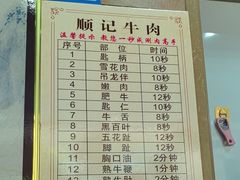 顺记牛肉
温馨提示 教您一秒成涮肉高手
序号 部位 时间
1 匙柄 10秒
2 雪花肉 8秒
3 吊龙伴 10秒
4 嫩肉 8秒
5 肥牛 12秒
6 匙仁 10秒
7 牛舌 8秒
8 黑百叶 8秒
9 五花趾 12秒
10 脚趾 12秒
11 胸口油 2分钟
12 熟牛鞭 1分钟
2分钟